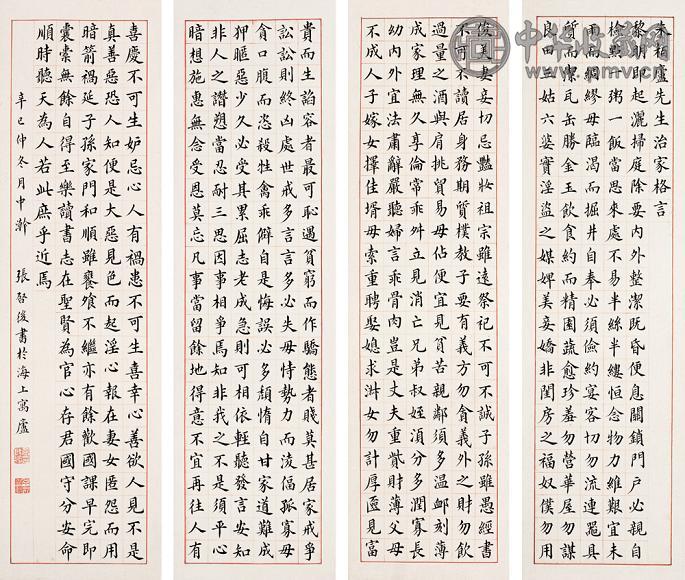 朱柏廬先生治家格言
黎明即起灑掃庭除要內外整潔既昏便息關鎖門戶必親自
檢點一粥一飯當思來處不易半絲半縷恒念物力維艱宜未
雨而綢繆毋臨渴而掘井自奉必須儉約宴客切勿流連器具
質而潔瓦缶勝金玉飲食約而精園蔬愈珍羞勿營華屋勿謀
良田三姑六婆實淫盜之媒婢美妾嬌非閨房之福奴僕勿用
俊美妻妾切忌艷妝祖宗雖遠祭祀不可不誠子孫雖愚經書
不可不讀居身務期質樸教子要有義方勿貪義外之財勿飲
過量之酒與肩挑貿易毋佔便宜見貧苦親鄰須多溫卹刻薄
成家理無久享倫常乖舛立見消亡兄弟叔姪須分多潤寡長
幼內外宜法肅辭嚴聽婦言乖骨肉豈是丈夫重貲財薄父母
不成人子嫁女擇佳壻毋索重聘娶媳求淑女勿計厚匳見富
貴而生諂容者最可恥遇貧窮而作驕態者賤莫甚居家戒爭
訟訟則終凶處世戒多言言多必失毋恃勢力而淩偪孤寡毋
貪口腹而恣殺牲禽乖僻自是悔誤必多頹惰自甘家道難成
狎暱惡少久必受其累屈志老成急則可相依輕聽發言安知
非人之譖愬當忍耐三思因事相爭焉知非我之不是須平心
暗想施惠無念受恩莫忘凡事當留餘地得意不宜再往人有
喜慶不可生妒忌心人有禍患不可生喜幸心善欲人見不是
真善惡恐人知便是大惡見色而起淫心報在妻女匿怨而用
暗箭禍延子孫家門和順雖饔飧不繼亦有餘歡國課早完即
囊橐無餘自得至樂讀書志在聖賢為官心存君國守分安命
順時聽天為人若此庶乎近焉
辛巳仲冬月中澣 張啓後書於海上寓廬
中华收藏网